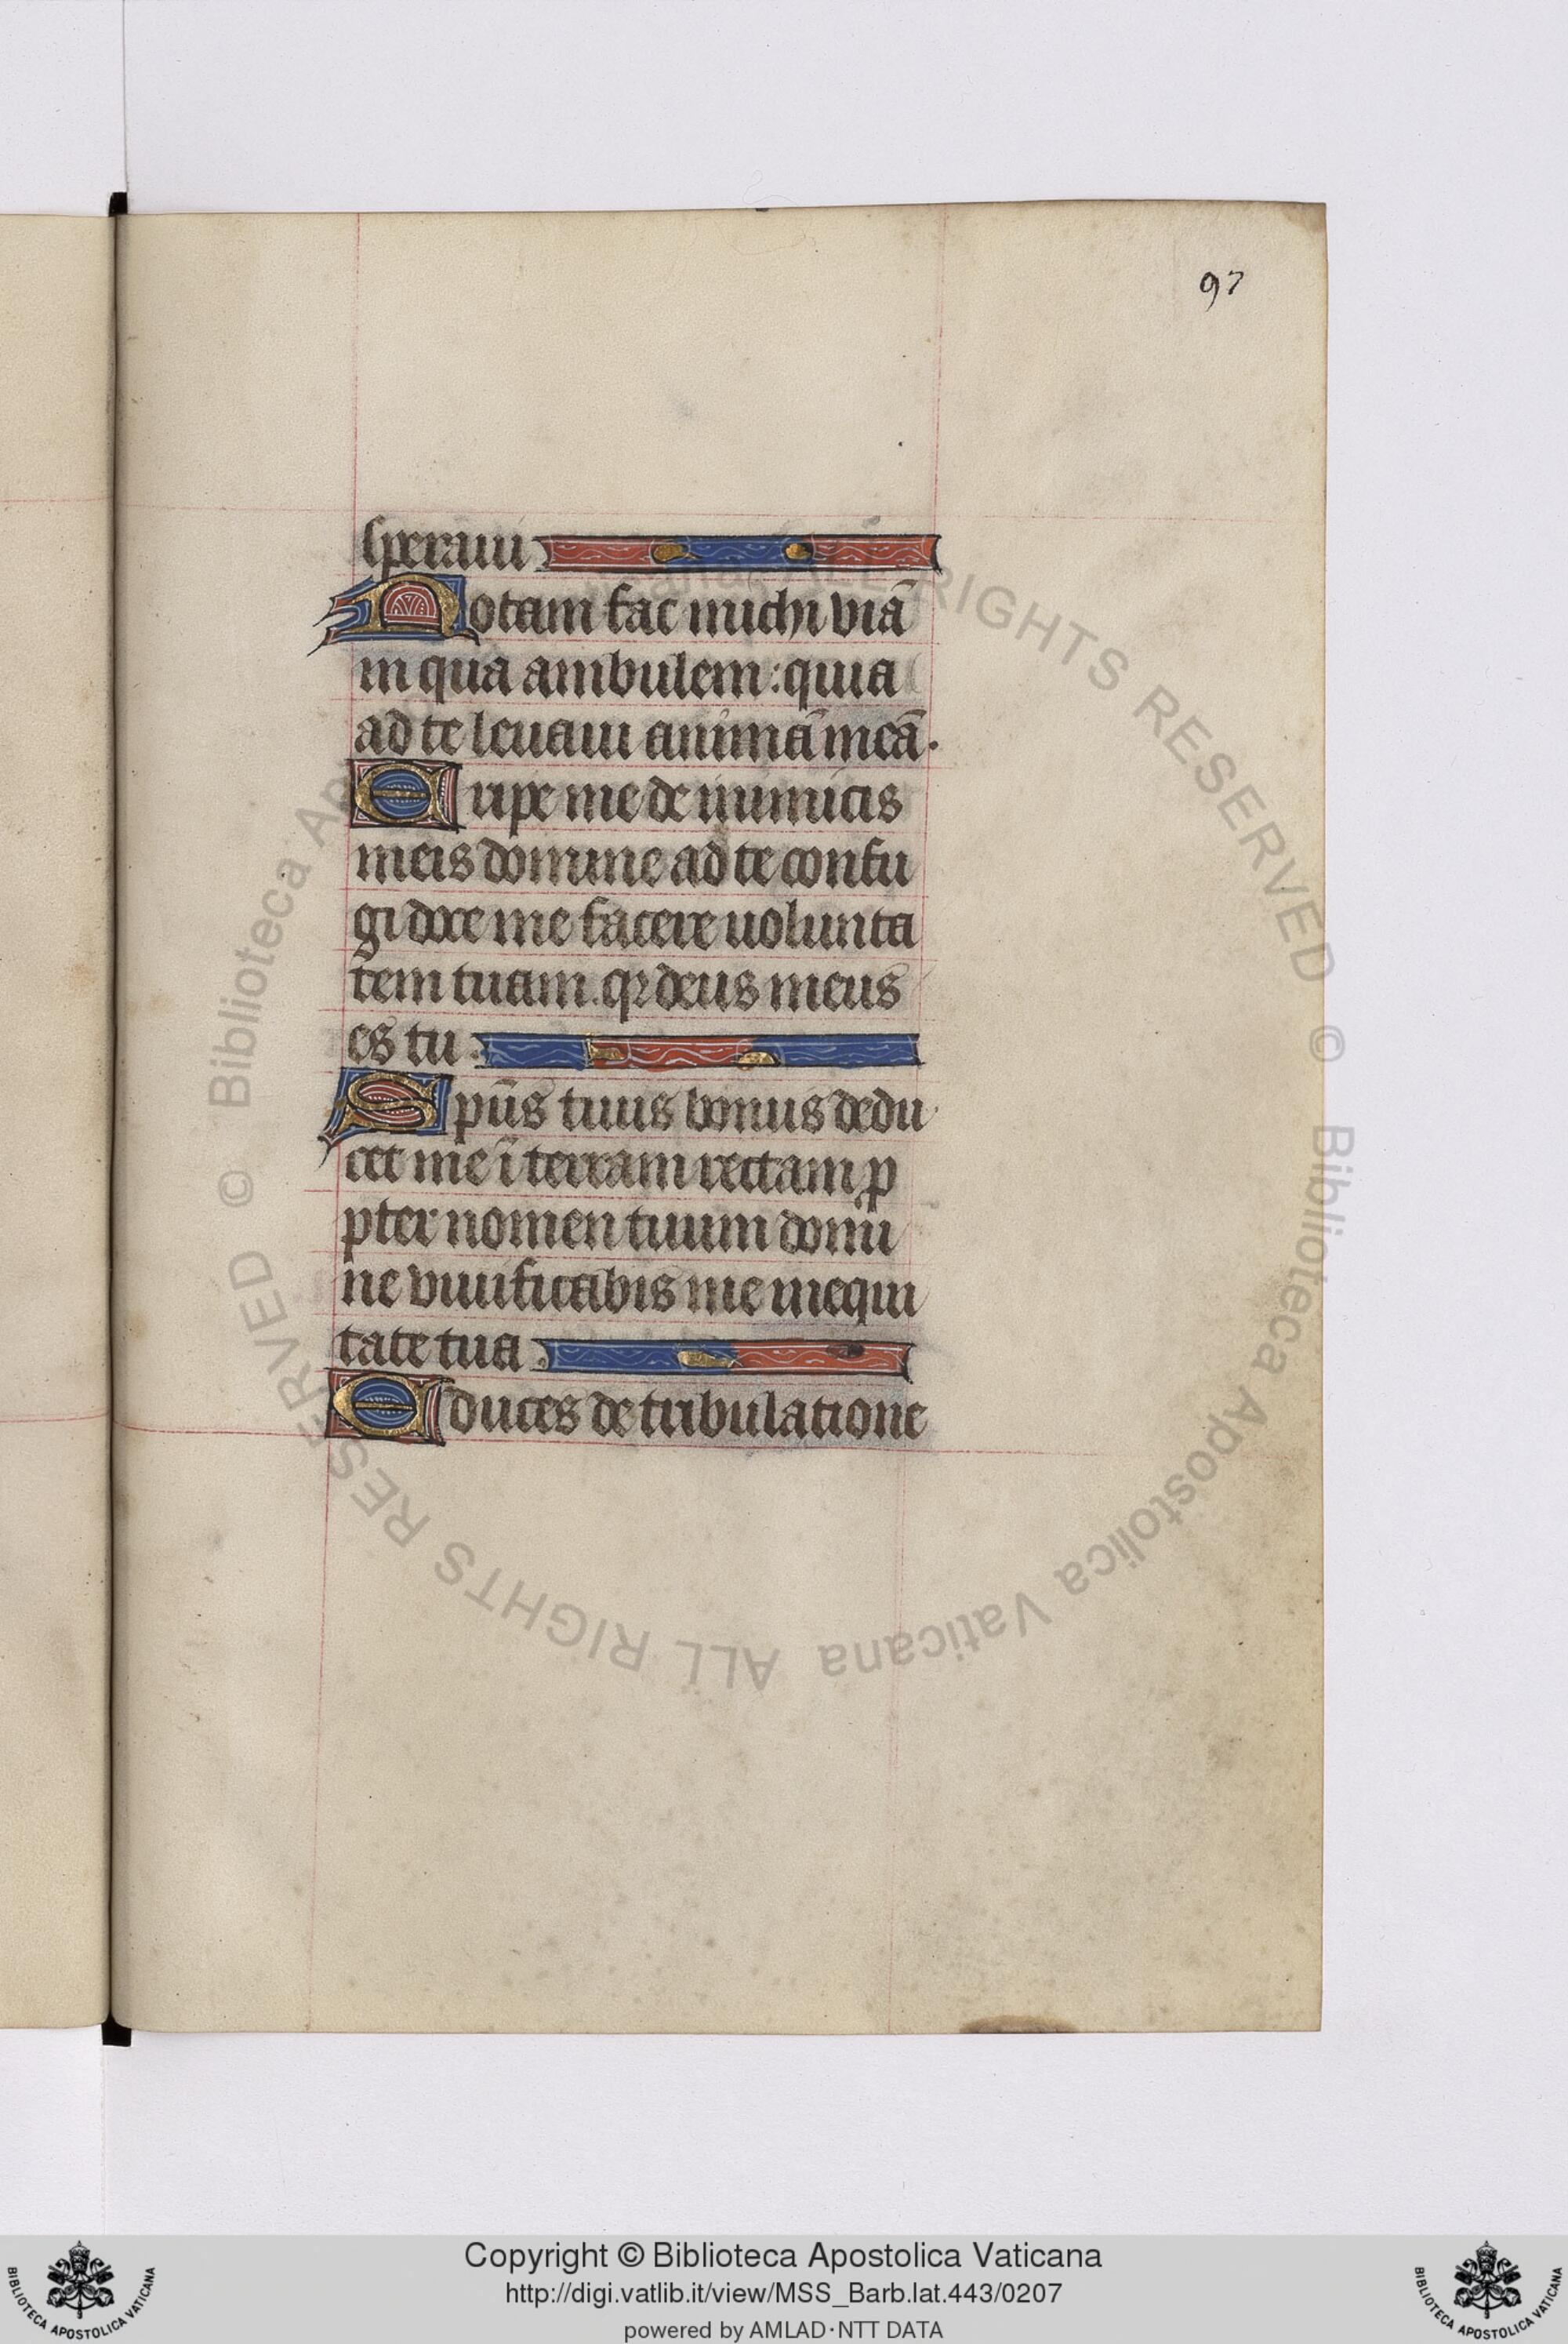 97
speraui
Notam fac michi viā
in qua ambulem: quia
ad te leuaui animā meā.
Eripe me de inimicis
meis domine ad te confu
gi doce me facere uolunta
tem tuam. qꝛ deus meus
es tu.
Spūs tuus bonus dedu
cet me ī terram rectam ꝓ
pter nomen tuum domi
ne viuificabis me inequi
tate tua.
Educes de tribulatione
© Biblioteca Apostolica Vaticana ALL RIGHTS RESERVED
© Biblioteca Apostolica Vaticana ALL RIGHTS RESERVED
Copyright © Biblioteca Apostolica Vaticana
http://digi.vatlib.it/view/MSS_Barb.lat.443/0207
powered by AMLAD·NTT DATA
BIBLIOTECA APOSTOLICA VATICANA
BIBLIOTECA APOSTOLICA VATICANA